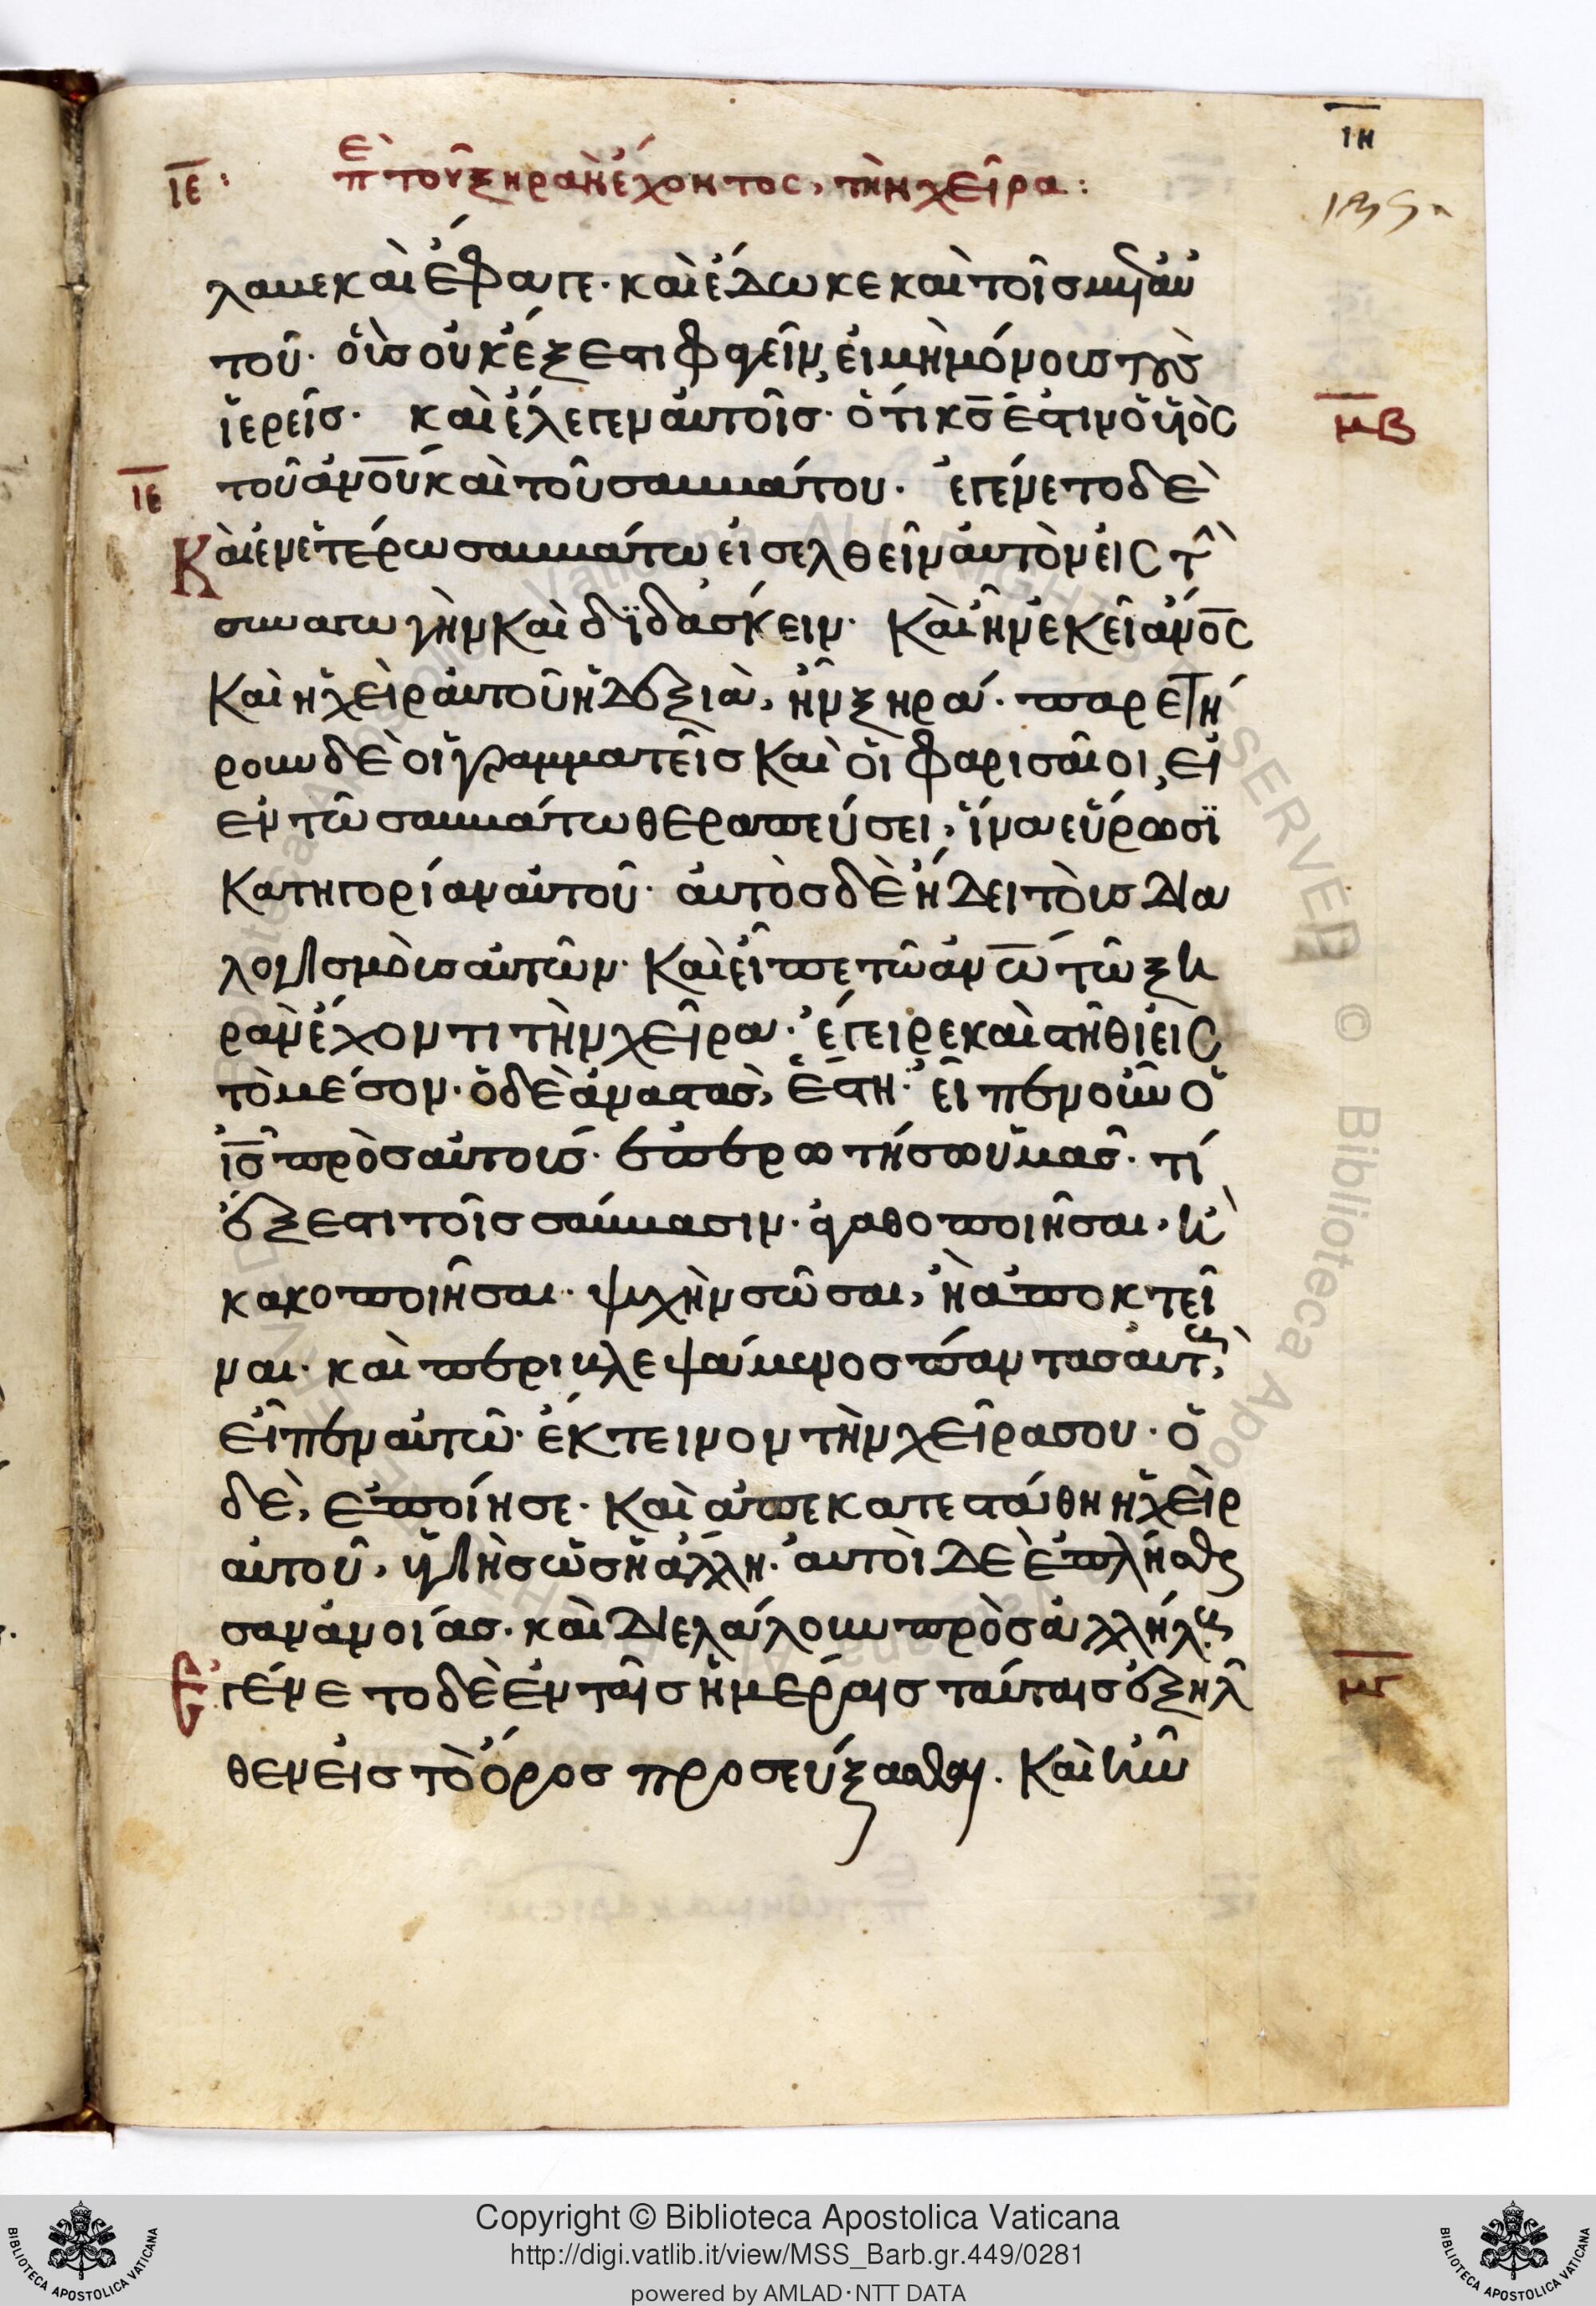 ῑη
135a
ῑε: πε τοῦ ξηρὰν ἔχοντος, τὴν χεῖρα:
λαβε καὶ ἔφαγε· καὶ ἔδωκε καὶ τοῖς μετ αυ
τοῦ· οὓς οὐκ ἔξεστι φαγεῖν, εἰ μὴ μόνους τοὺς
ἱερεῖς· καὶ ἔλεγεν αυτοῖς· ὅτι κ̅ς̅ ἐστιν ὁ υἱὸς
μ̅β̅
τοῦ ἀν̅ο̅υ̅ καὶ τοῦ σαββάτου· ἐγένετο δὲ
ῑε
Καὶ ἐν ἑτέρω σαββάτω εἰσελθεῖν αυτὸν εἰς τὴν
συναγωγὴν καὶ διδάσκειν· Καὶ ἦν ἐκεῖ ἄν̅ο̅ς̅
Καὶ ἡ χεὶρ αυτοῦ ἡ δεξιὰ, ἦν ξηρά· παρετή
ρουν δὲ οἱ γραμματεῖς Καὶ οἱ φαρισαῖοι, εἰ
ἐν τῶ σαββάτω θεραπεύσει, ἵνα εὕρωσϊ
Κατηγορίαν αυτοῦ· αὐτὸς δὲ ἤδει τοὺς δια
λογισμοὺς αυτῶν· Καὶ εἶπε τῶ ἀν̅ω̅ τῶ ξη
ρὰν ἔχοντι τὴν χεῖρα· ἔγειρε καὶ στῆθι εἰς
τὸ μέσον· ὁ δὲ ἀναστὰς, ἔστη· εἶπεν οὖν ὁ
ι̅ς̅ πρὸς αὐτούς· ἐπερωτήσω ὑμᾶς· τί
ἔξεστι τοῖς σάββασιν· ἀγαθοποιῆσαι, ἢ
κακοποιῆσαι· ψυχὴν σῶσαι, ἢ ἀποκτεῖ
ναι· καὶ περιβλεψάμενος πάντας αυτοὺς,
εἶπεν αὐτῶ· ἔκτεινον τὴν χεῖρα σου· ὁ
δὲ, ἐποίησε· Καὶ ἀπεκατεστάθη ἡ χεὶρ
αὐτοῦ, ὑγιὴς ὡς ἡ ἄλλη· αυτοὶ δὲ ἐπλήσθη
σαν ἀνοίας· καὶ διελάλουν πρὸς ἀλλήλους
Ἐγένετο δὲ ἐν ταῖς ἡμέραις ταύταις ἐξῆλ
θεν εἰς τὸ ὄρος προσεύξασθαι. Καὶ ἦν
Copyright © Biblioteca Apostolica Vaticana
http://digi.vatlib.it/view/MSS_Barb.gr.449/0281
powered by AMLAD·NTT DATA
BIBLIOTECA APOSTOLICA VATICANA
BIBLIOTECA APOSTOLICA VATICANA